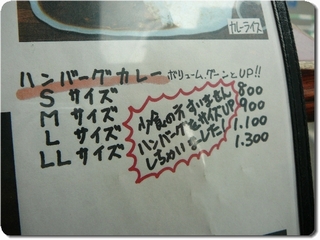 カレーライス
ハンバーグカレー ボリューム、グーンとUP!!
Sサイズ 800
Mサイズ 900
Lサイズ 1.100
LLサイズ 1.300
小食の方すいません
ハンバーグもサイズUP
しちゃいました!